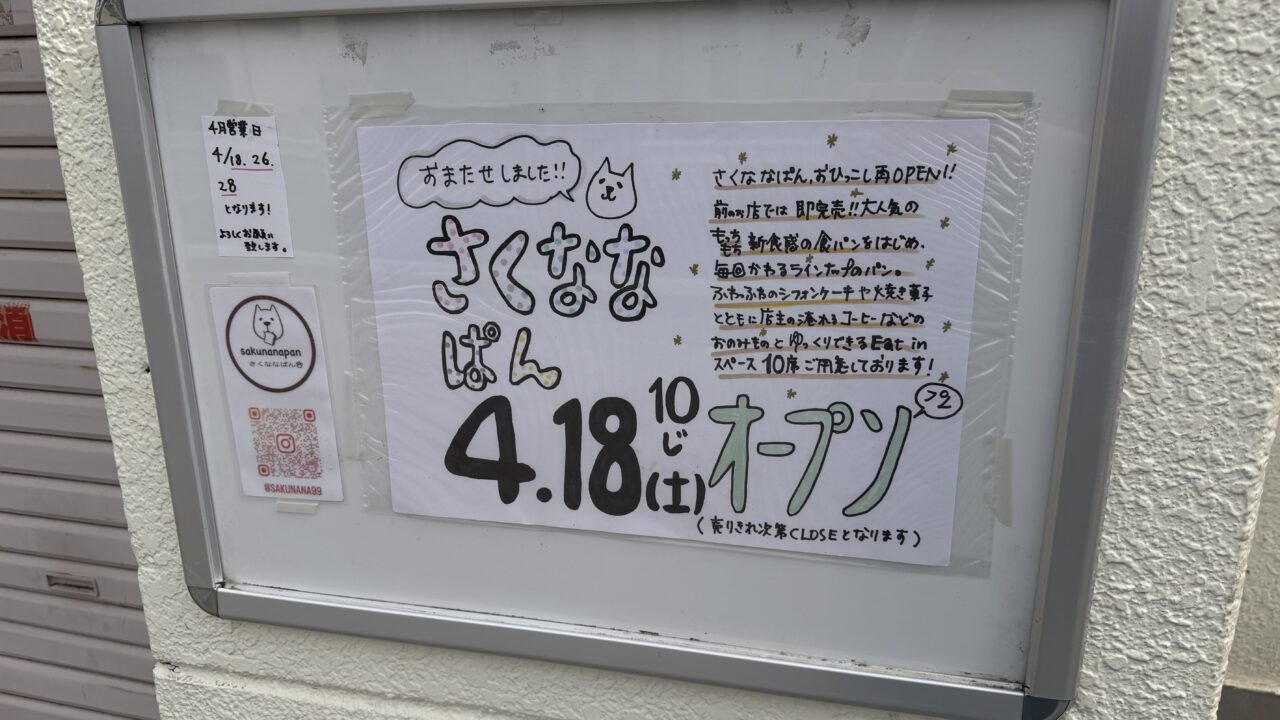 4月営業日
4/18.26.
28
となります!
よろしくお願い
致します。
sakunanapan
さくななぱん
@SAKUNANA99
おまたせしました!!
さくなな
ぱん
4.18(土)
10じ
オープン
(売りきれ次第CLOSEとなります)
さくななぱん、おひっこし再OPEN!!
前のお店では即完売!!大人気の
もっちもち新食感の食パンをはじめ、
毎回かわるラインナップのパン。
ふわっふわのシフォンケーキや焼き菓子
とともに店主の淹れるコーヒーなどの
おのみものとゆっくりできるEat in
スペース10席ご用意しております!